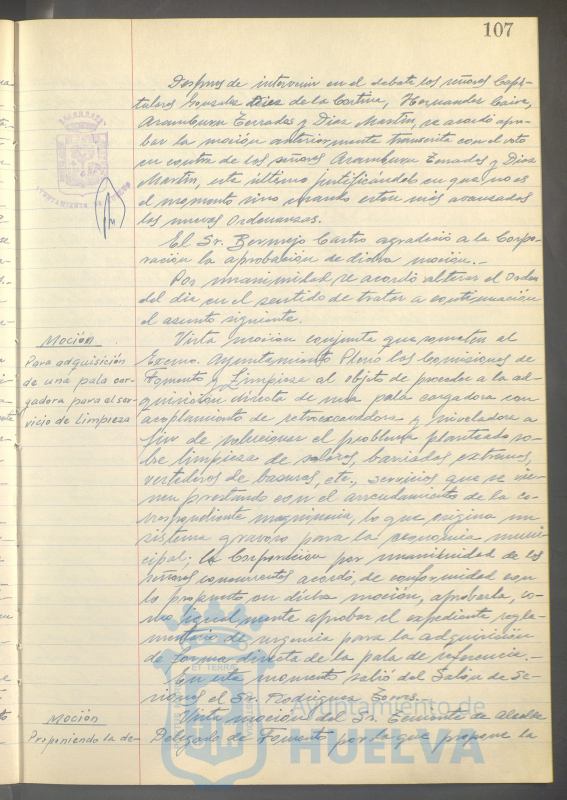 107
Despues de intervenir en el debate los señores Capi-
tulares Gonzalez Diez de la Cortina, Hernandez Caire,
Aramburu Terrades y Diaz Martin, se acordó apro-
bar la moción anteriormente transcrita con el voto
en contra de los señores Aramburu Terrades y Diaz
Martin, este ultimo justificándolo en que no es
el momento sino cuando esten más avanzados
las nuevas Ordenanzas.
El Sr. Bermejo Castro agradeció a la Corpo-
ración la aprobación de dicha moción.-
Por unanimidad se acordó alterar el Orden
del dia en el sentido de tratar a continuación
el asunto siguiente.
Moción
Para adquisición
de una pala car-
gadora para el ser-
vicio de Limpieza
Vista moción conjunta que someten al
Excmo. Ayuntamiento Pleno las Comisiones de
Fomento y Limpieza al objeto de proceder a la ad-
quisición directa de una pala cargadora con
acoplamiento de retroexcavadora y niveladora a
fin de solucionar el problema planteado so-
bre limpieza de solares, barriadas extremas,
vertederos de basuras, etc., servicios que se vie-
nen prestando con el arrendamiento de la co-
rrespondiente maquinaria, lo que origina un
sistema gravoso para la economia muni-
cipal; la Corporación por unanimidad de los
señores concurrentes acordó, de conformidad con
lo propuesto en dicha moción, aprobarla, co-
mo igualmente aprobar el expediente regla-
mentario de urgencia para la adquisición
de forma directa de la pala de referencia.-
En este momento salió del Salón de Se-
siones el Sr. Rodriguez Torres.
Moción
Proponiendo la de-
Vista moción del Sr. Teniente de Alcalde
Delegado de Fomento por la que propone la
Ayuntamiento de
HUELVA